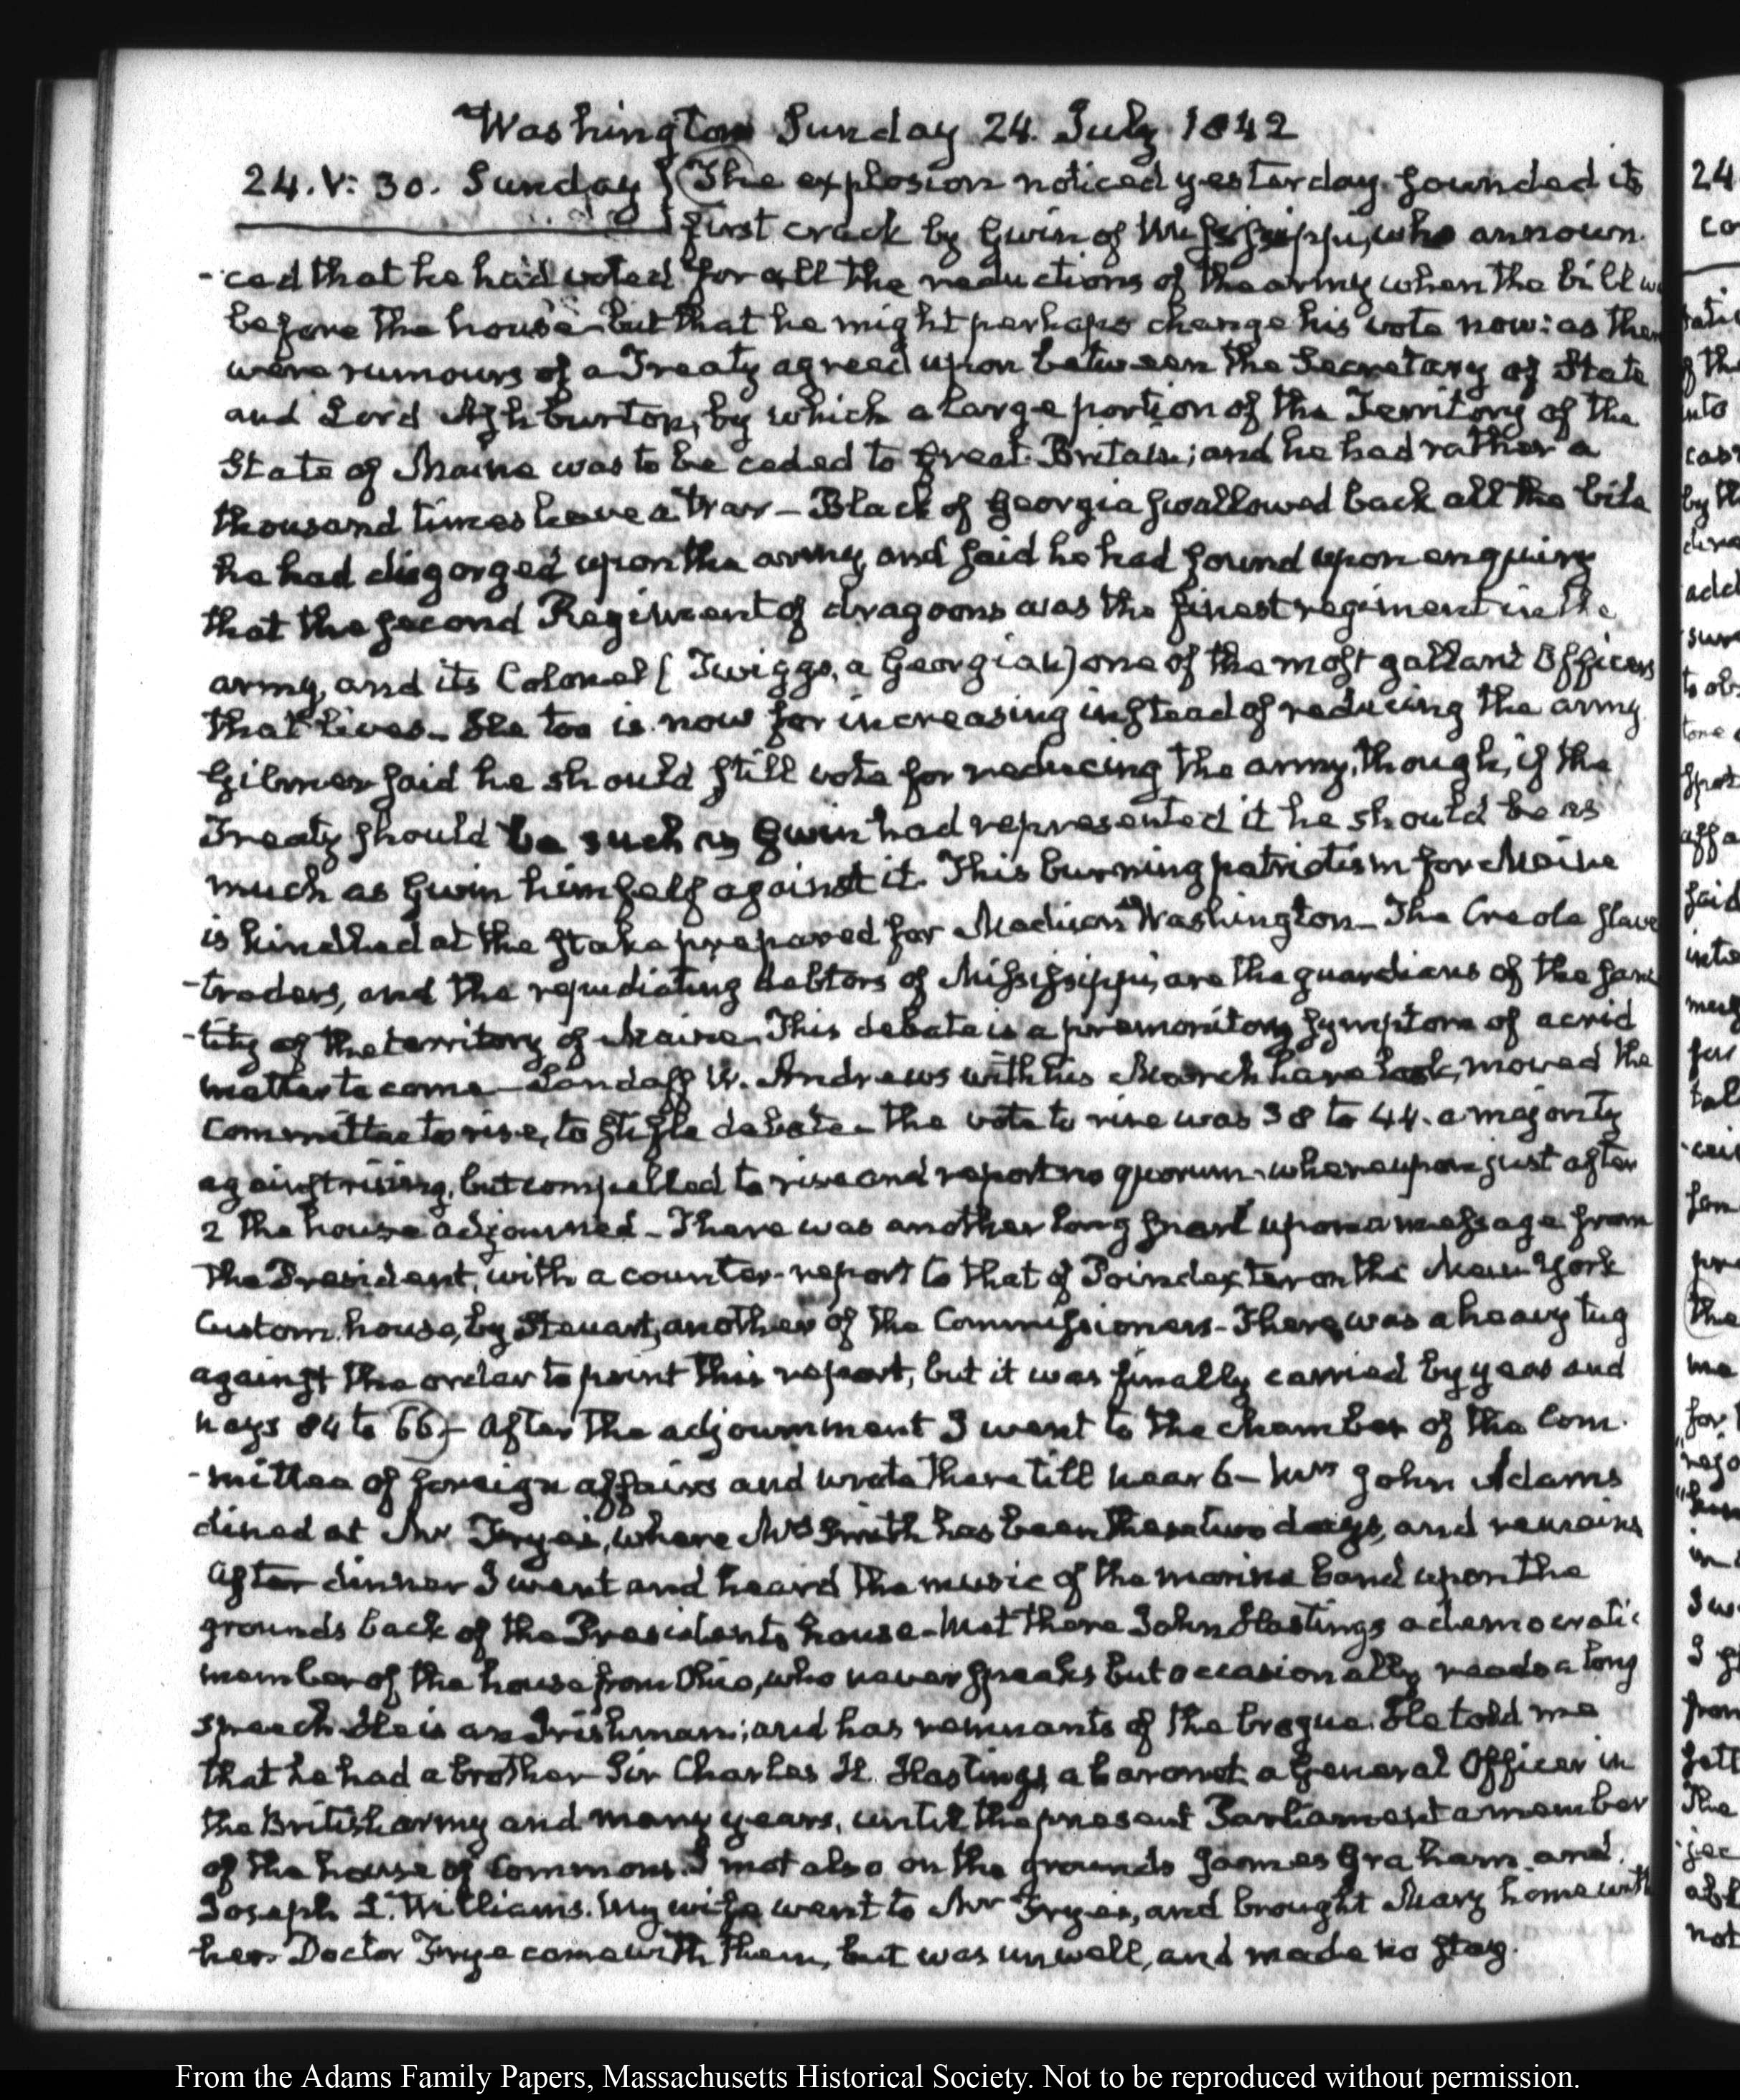 Washington Sunday 24. July 1842
24. V: 30. Sunday { The explosion noticed yesterday sounded its
first crack by Gwin of Mississippi, who announ
-ced that he had voted for all the reductions of the army when the bill w
before the house but that he might perhaps change his vote now: as ther
were rumours of a Treaty agreed upon between the Secretary of State
and Lord Ashburton, by which a large portion of the Territory of the
State of Maine was to be ceded to Great-Britain; and he had rather a
thousand times have a war – Black of Georgia swallowed back all the bile
he had disgorged upon the army, and said he had found upon enquiry
that the second Regiment of dragoons was the finest regiment in the
army, and its Colonel (Twiggs, a Georgian) one of the most gallant Officers
that lives – He too is now for increasing instead of reducing the army.
Gilmer said he should still vote for reducing the army, though, if the
Treaty should be such as Gwin had represented it he should be as
much as Gwin himself against it. This burning patriotism for Maine
is kindled at the stake prepared for Madison Washington – The Creole slave
-traders, and the repudiating debtors of Mississippi, are the guardians of the sanc
-tity of the territory of Maine – This debate is a premonitory symptom of acrid
matter to come – Landaff W. Andrews with his March hare look, moved the
Committee to rise, to stifle debate – the vote to rise was 38 to 44. a majority
against rising, but compelled to rise and report no quorum – whereupon just after
2 the house adjourned – There was another long snarl upon a message from
the President, with a counter-report to that of Poindexter on the New-York
Custom house, by Steuart, another of the Commissioners – There was a heavy tug
against the order to print this report, but it was finally carried by yeas and
nays 84 to 66) – After the adjournment I went to the chamber of the Com
-mittee of foreign affairs and wrote there till near 6 – Mrs John Adams
dined at Mr Frye's, where Mrs Smith has been these two days, and remains
After dinner I went and heard the music of the marine band upon the
grounds back of the President's house – Met there John Hastings a democratic
member of the house from Ohio, who never speaks but occasionally reads a long
speech. He is an Irishman; and has remnants of the brogue. He told me
that he had a brother Sir Charles H. Hastings, a baronet a General Officer in
the British army and many years, until the present Parliament a member
of the house of Commons. I met also on the grounds James Graham and
Joseph L. Williams. My wife went to Mr Frye's, and brought Mary home with
her. Doctor Frye came with them, but was unwell, and made no stay.
From the Adams Family Papers, Massachusetts Historical Society. Not to be reproduced without permission.